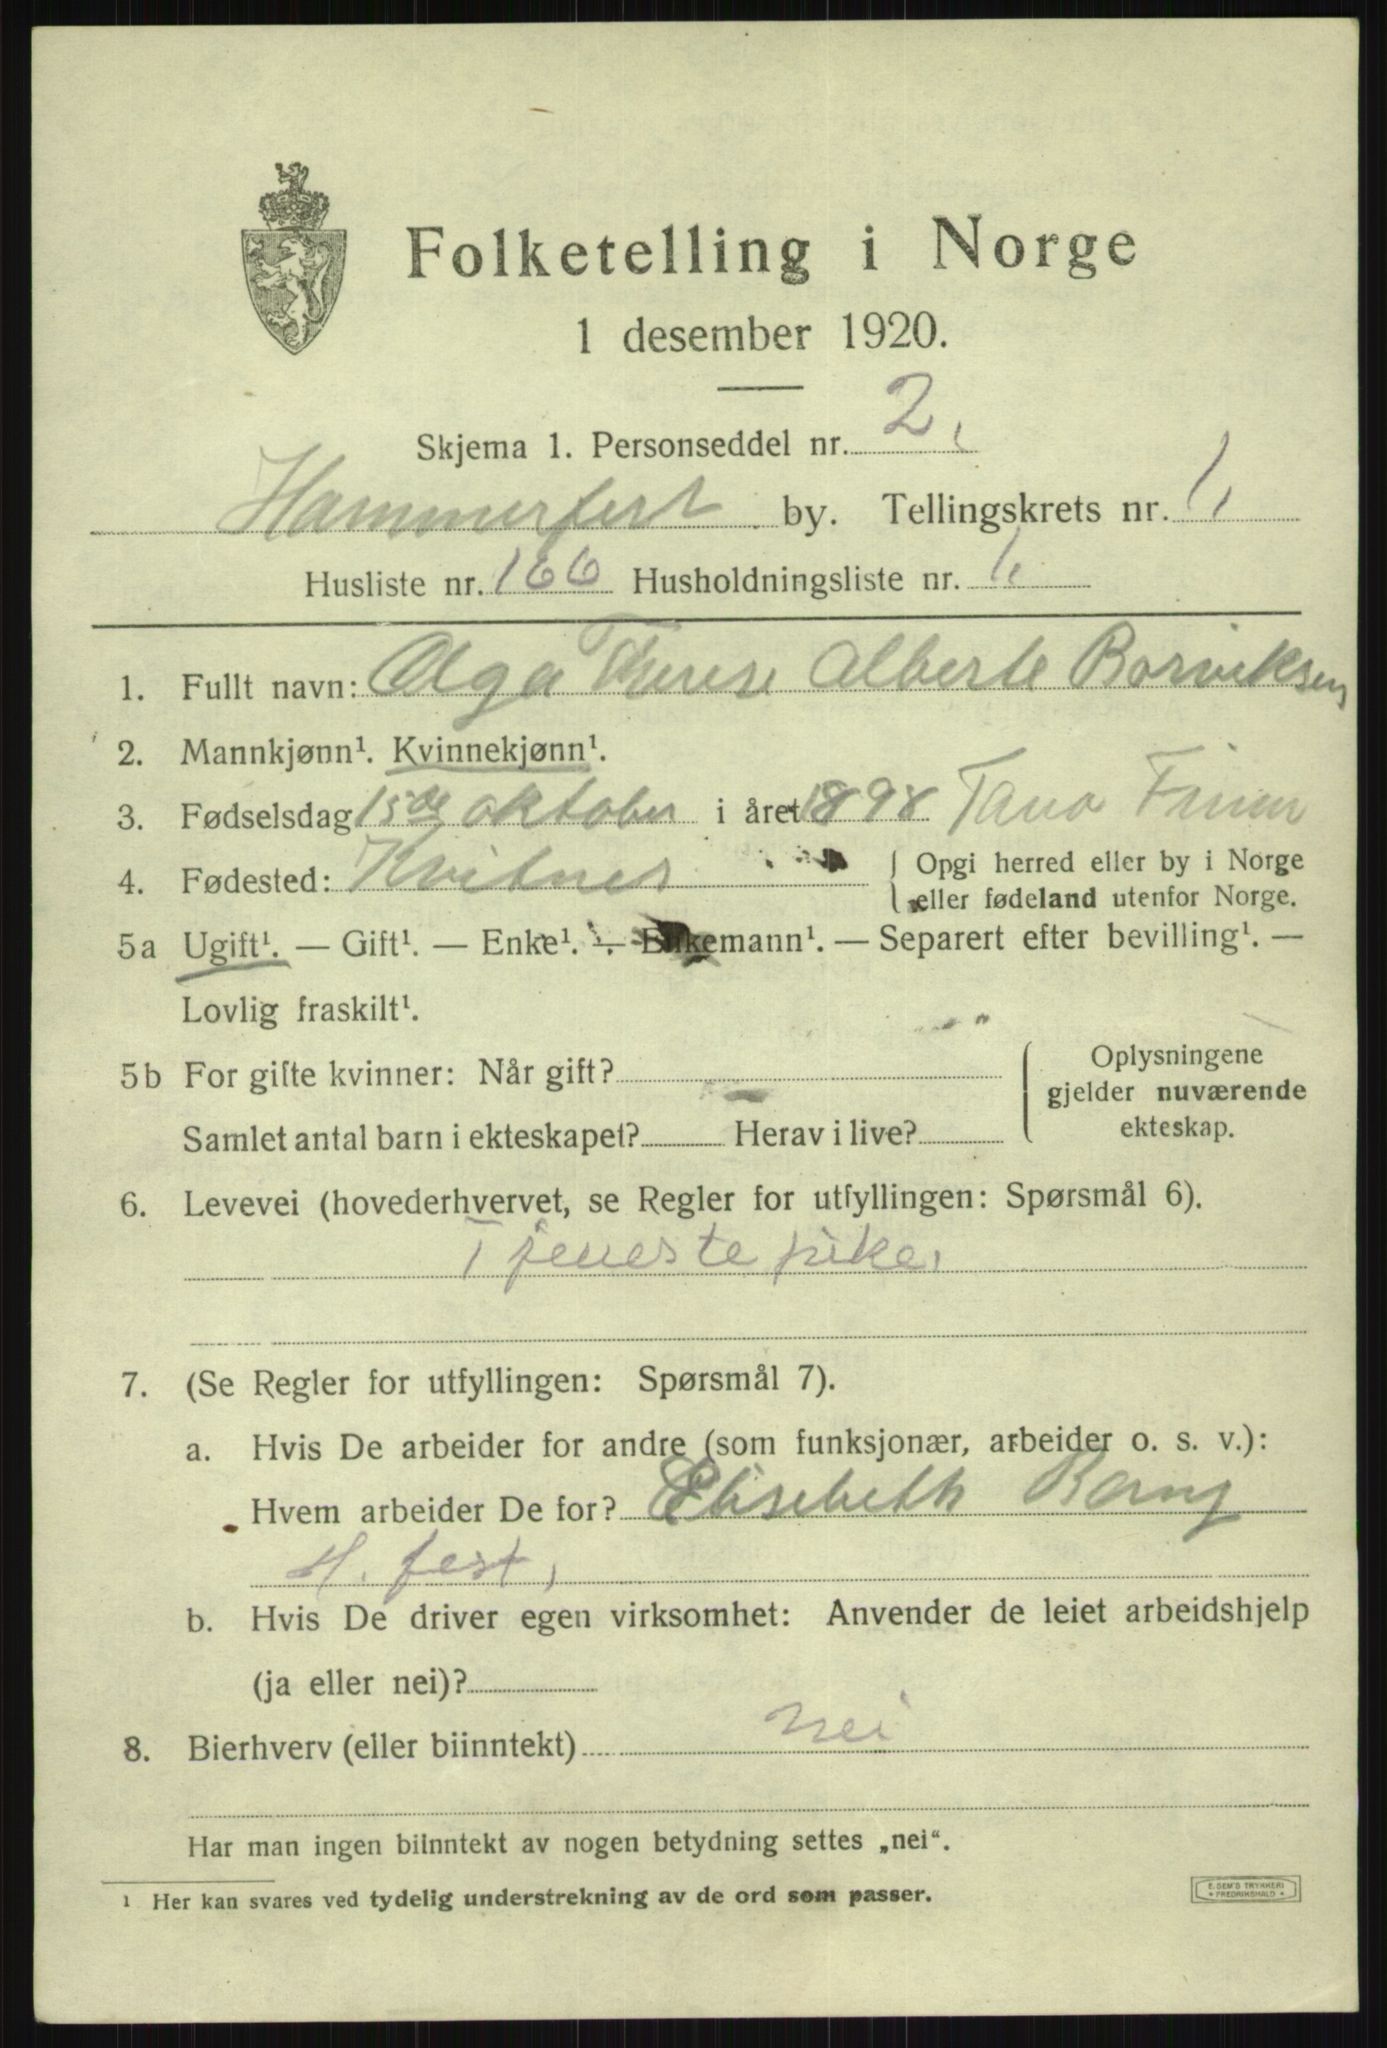 Folketelling i Norge
1 desember 1920.
Skjema 1. Personseddel nr. 2.
Hammerfest by. Tellingskrets nr. 1.
Husliste nr. 166 Husholdningsliste nr. 1.
1. Fullt navn: Olga Therese Alberte Borviksen
2. Mannkjønn¹. Kvinnekjønn¹.
3. Fødselsdag 15de oktober i året 1898 Tana Finm
4. Fødested: Kvitnes { Opgi herred eller by i Norge
eller fødeland utenfor Norge.
5a Ugift¹. — Gift¹. — Enke¹. — Enkemann¹. — Separert efter bevilling¹. —
Lovlig fraskilt¹.
5b For gifte kvinner: Når gift? { Oplysningene
gjelder nuværende
Samlet antal barn i ekteskapet? Herav i live? ekteskap.
6. Levevei (hovederhvervet, se Regler for utfyllingen: Spørsmål 6).
Tjenestepike.
7. (Se Regler for utfyllingen: Spørsmål 7).
a. Hvis De arbeider for andre (som funksjonær, arbeider o. s. v.):
Hvem arbeider De for? Elisebeth Bang
H. fest,
b. Hvis De driver egen virksomhet: Anvender de leiet arbeidshjelp
(ja eller nei)?
8. Bierhverv (eller biinntekt) nei
Har man ingen biinntekt av nogen betydning settes „nei“.
¹ Her kan svares ved tydelig understrekning av de ord som passer.
E. SEM'S TRYKKERI
• FREDRIKSHALD •